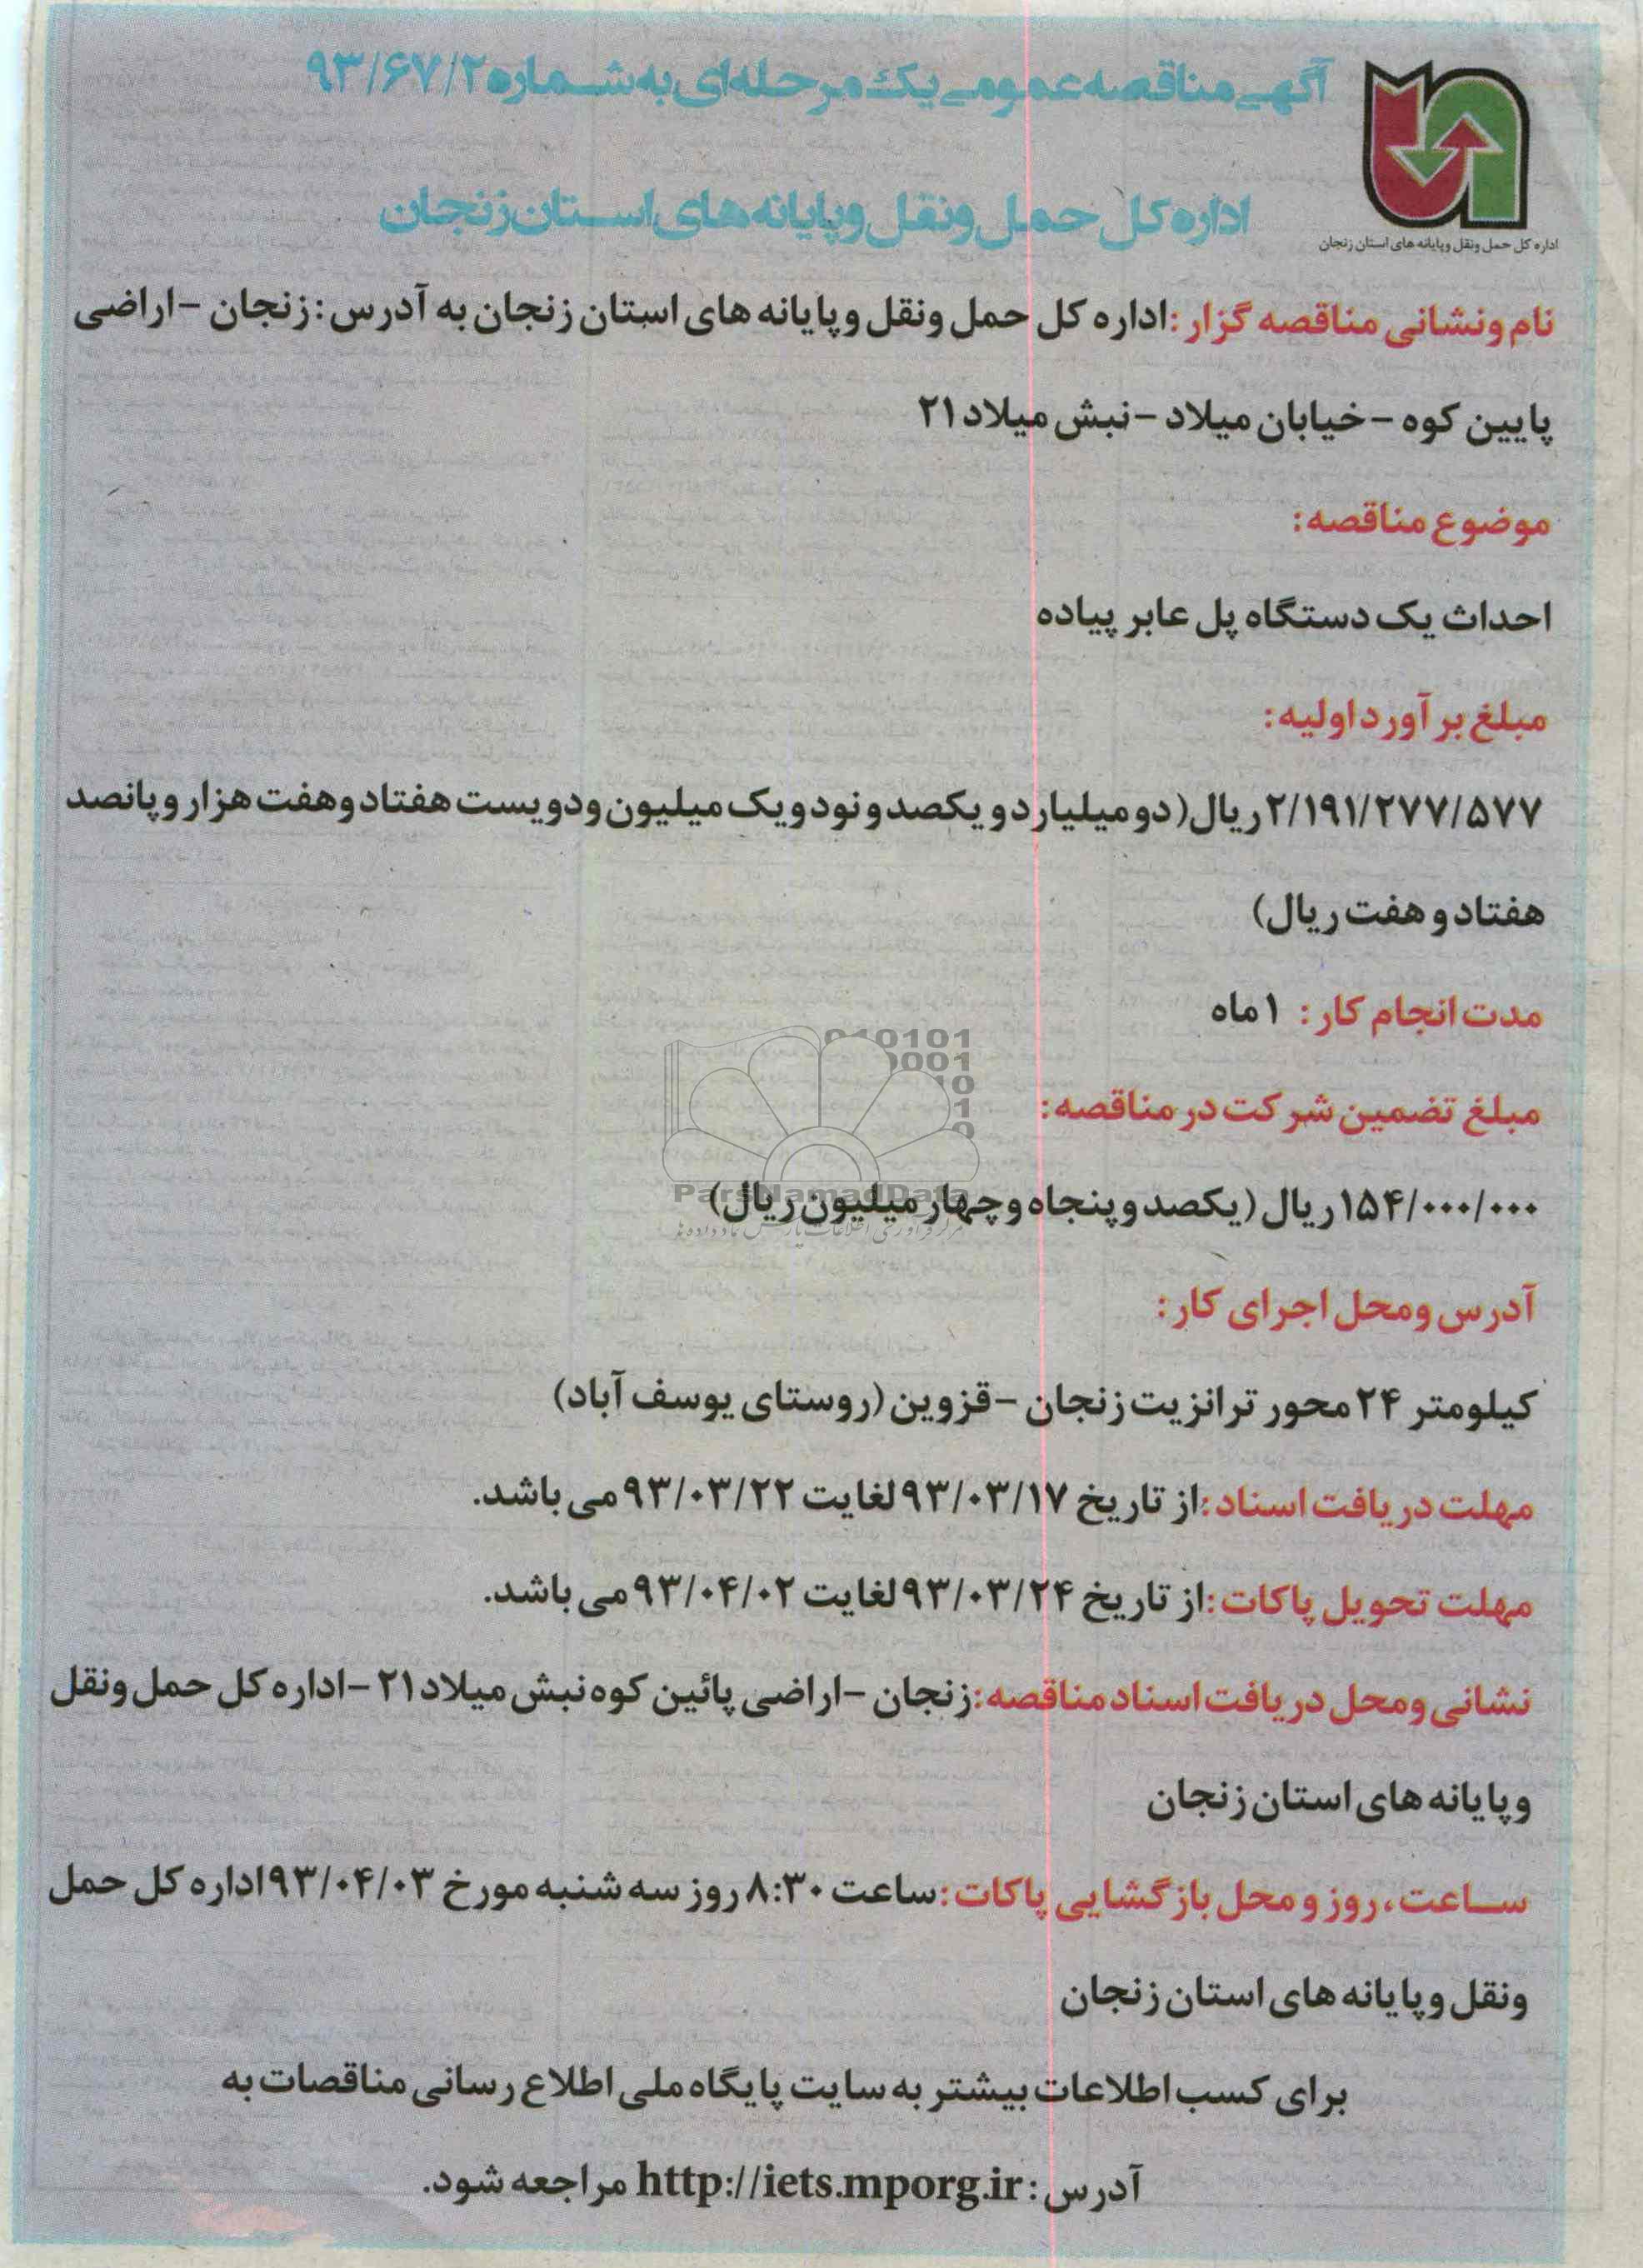 آگهی مناقصه عمومی یک مرحله ای به شماره ۹۳/۶۷/۲
اداره کل حمل و نقل و پایانه های استان زنجان
اداره کل حمل ونقل و پایانه های استان زنجان
نام ونشانی مناقصه گزار :اداره کل حمل ونقل و پایانه های استان زنجان به آدرس : زنجان -اراضی
پایین کوه - خیابان میلاد - نبش میلاد ۲۱
موضوع مناقصه:
احداث یک دستگاه پل عابر پیاده
مبلغ بر آورد اولیه:
۲/۱۹۱/۲۷۷/۵۷۷ ریال( دو میلیارد و یکصد و نود و یک میلیون و دویست هفتاد و هفت هزار و پانصد
هفتاد و هفت ریال)
مدت انجام کار : ۱ ماه
010101
0001
10
1
0
مبلغ تضمین شرکت در مناقصه:
ParsNamadData
۱۵۴/۰۰۰/۰۰۰ ریال (یکصد و پنجاه و چهار میلیون ریال)
مرکز فرآوری اطلاعات پارس نماد داده ها
آدرس و محل اجرای کار :
کیلومتر ۲۴ محور ترانزیت زنجان -قزوین (روستای یوسف آباد)
مهلت دریافت اسناد :از تاریخ ۹۳/۰۳/۱۷ لغایت ۹۳/۰۳/۲۲ می باشد.
مهلت تحویل پاکات :از تاریخ ۹۳/۰۳/۲۴ لغایت ۹۳/۰۴/۰۲ می باشد.
نشانی و محل دریافت اسناد مناقصه:زنجان -اراضی پائین کوه نبش میلاد ۲۱ -اداره کل حمل ونقل
و پایانه های استان زنجان
ساعت، روز و محل بازگشایی پاکات :ساعت ۸:۳۰ روز سه شنبه مورخ ۹۳/۰۴/۰۳ اداره کل حمل
ونقل و پایانه های استان زنجان
برای کسب اطلاعات بیشتر به سایت پایگاه ملی اطلاع رسانی مناقصات به
آدرس : http://iets.mporg.ir مراجعه شود.